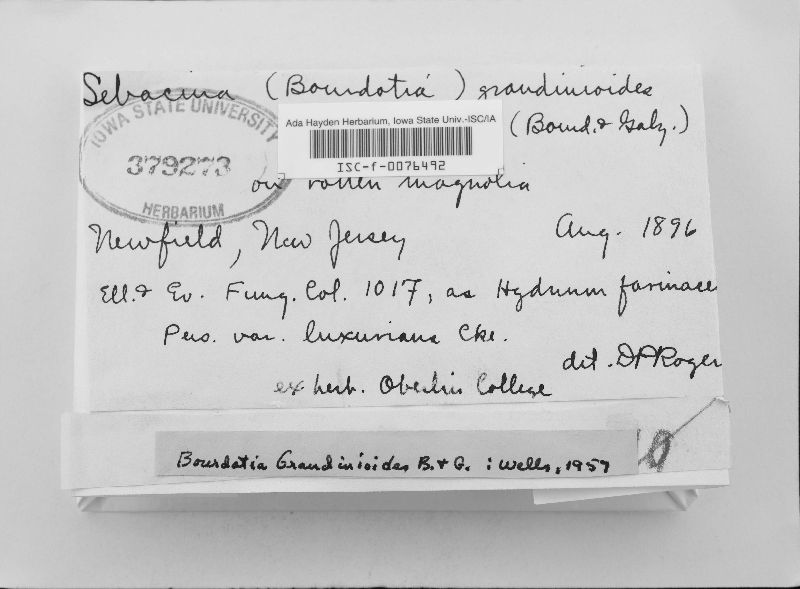 Sebacina (Bourdotia) grandinioides
(Bourd. & Galz.)
IOWA STATE UNIVERSITY
379273
HERBARIUM
Ada Hayden Herbarium, Iowa State Univ.-ISC/IA
ISC-f-0076492
on rotten magnolia
Newfield, New Jersey Aug. 1896
Ell. & Ev. Fung. Col. 1017, as Hydnum farinace
Pers. var. luxurians Cke.
det. DPRoger
ex herb. Oberlin College
Bourdotia Grandinioides B. & G. : Wells, 1957